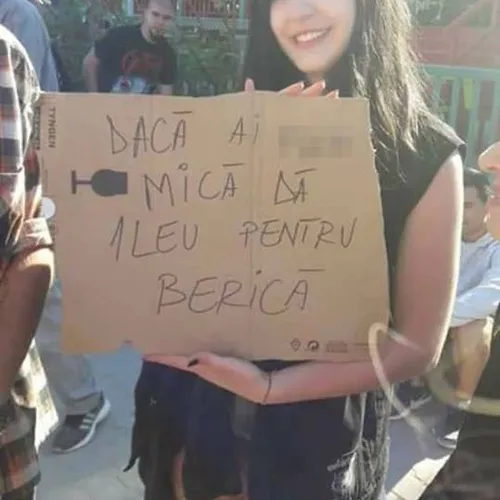 DACĂ Ai
MICĂ DĂ
1LEU PENTRU
BERICĂ
TYNGEN